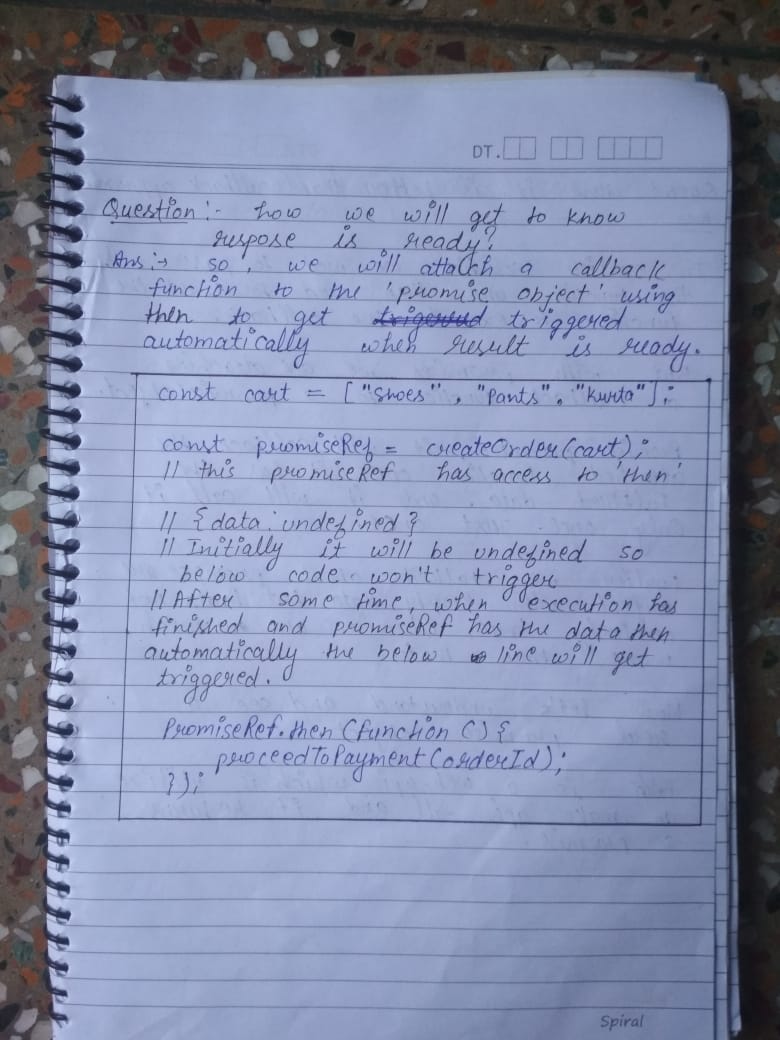 DT.
Question :- how we will get to know
respose is ready?
Ans :- so, we will attatch a callback
function to the 'promise object' using
then to get trigerred triggered
automatically when result is ready.
const cart = ["Shoes", "Pants", "Kurta"];
const promiseRef = createOrder(cart);
// this promiseRef has access to 'then'
// {data: undefined}
// Initially it will be undefined so
below code won't trigger
// After some time, when execution has
finished and promiseRef has the data then
automatically the below line will get
triggered.
PromiseRef.then (function () {
proceedToPayment (orderId);
});
Spiral